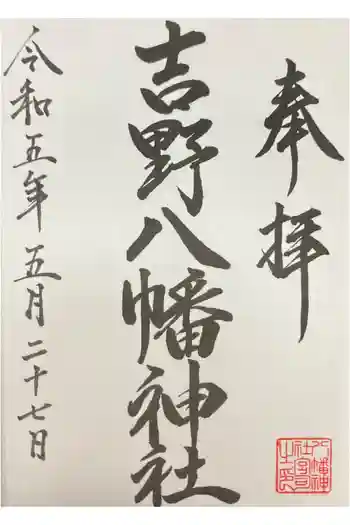 奉拝
吉野八幡神社
令和五年 五月二十七日